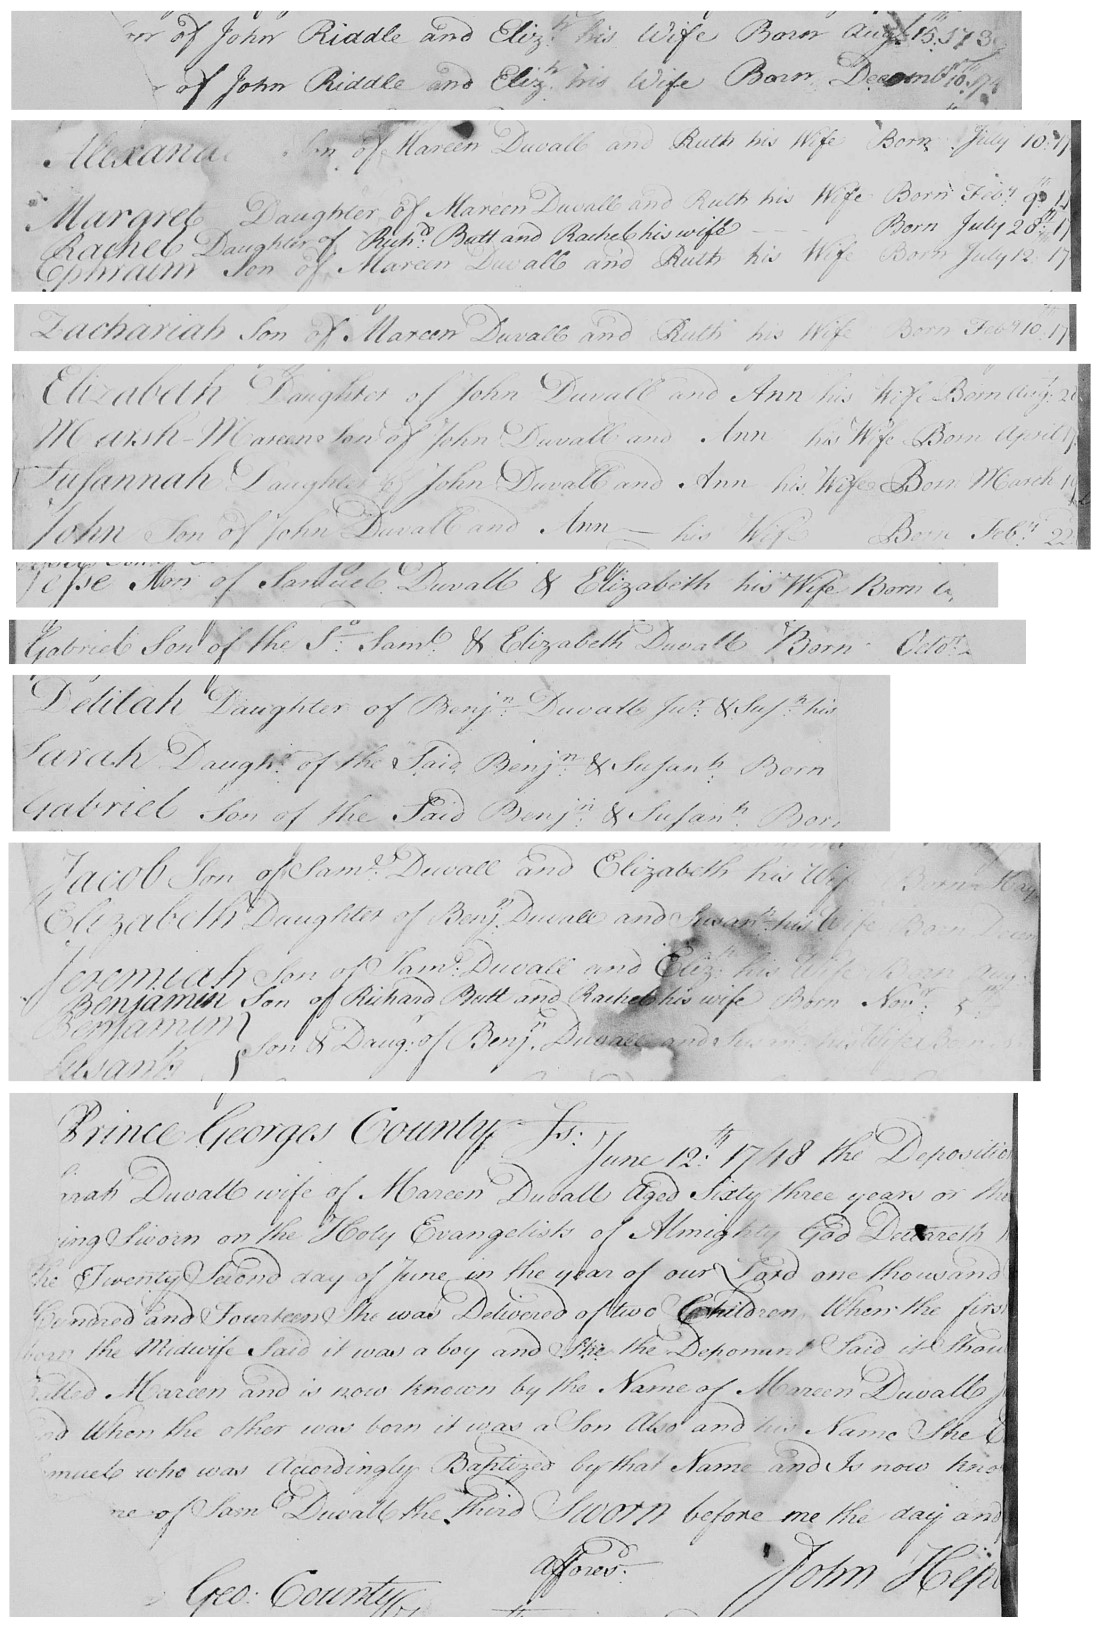 of John Riddle and Eliz.th his Wife Born Aug.t 15.th 173
of John Riddle and Eliz.th his Wife Born Decemb.r 10.th
Alexand Son of Mareen Duvall and Ruth his Wife Born July 10.th 17
Margret Daughter of Mareen Duvall and Ruth his Wife Born Feb.ry 9.th 17
Rachel Daughter of Rich.d Butt and Rachel his wife Born July 28.th 17
Ephraim Son of Mareen Duvall and Ruth his Wife Born July 12 17
Zachariah Son of Mareen Duvall and Ruth his Wife Born Feb.ry 10.th 17
Elizabeth Daughter of John Duvall and Ann his Wife Born Aug.t 2
Marsh-Mareen Son of John Duvall and Ann his Wife Born April
Susannah Daughter of John Duvall and Ann his Wife Born March
John Son of John Duvall and Ann — his Wife Born Feb.ry 22
Jesse Son of Samuel Duvall & Elizabeth his Wife Born
Gabriel Son of the S.d Sam.l & Elizabeth Duvall Born Octo.r
Delilah Daughter of Benj.n Duvall Jur. & Sus.h his
Sarah Daugh.r of the Said Benj.n & Susan.h Born
Gabriel Son of the Said Benj.n & Susan.h Born
Jacob Son of Sam.l Duvall and Elizabeth his Wife Born May
Elizabeth Daughter of Benj.n Duvall and Susan.h his Wife Born Decem
Jeremiah Son of Sam.l Duvall and Eliz.th his Wife Born Aug.
Benjamin Son of Richard Butt and Rachel his wife Born Nov.r 5
Benjamin }
Son & Daug.r of Benj.n Duvall and Susan his Wife Born
Susan.h }
Prince Georges County Ss: June 12.th 1748 the Depositio
arah Duvall wife of Mareen Duvall Aged Sixty three years or the
ing Sworn on the Holy Evangelists of Almighty God Declareth
the Twenty Second day of June in the year of our Lord one thousand
Hundred and Fourteen She was Delivered of two Children, When the first
born the Midwife Said it was a boy and She the Deponent Said it Shou
Called Mareen and is now known by the Name of Mareen Duvall
nd When the other was born it was a Son Also and his Name She
muel who was Accordingly Baptized by that Name and Is now kno
me of Sam.l Duvall the Third Sworn before me the day and
afores.d John Hep
Geo: County